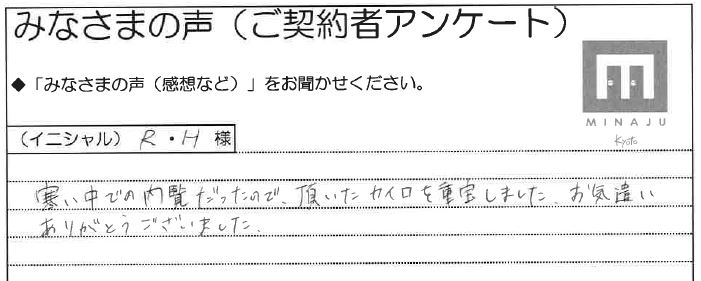 みなさまの声（ご契約者アンケート）
◆「みなさまの声（感想など）」をお聞かせください。
MINAJU
Kyoto
（イニシャル） R・H 様
寒い中での内覧だったので、頂いたカイロを重宝しました。お気遣い
ありがとうございました。